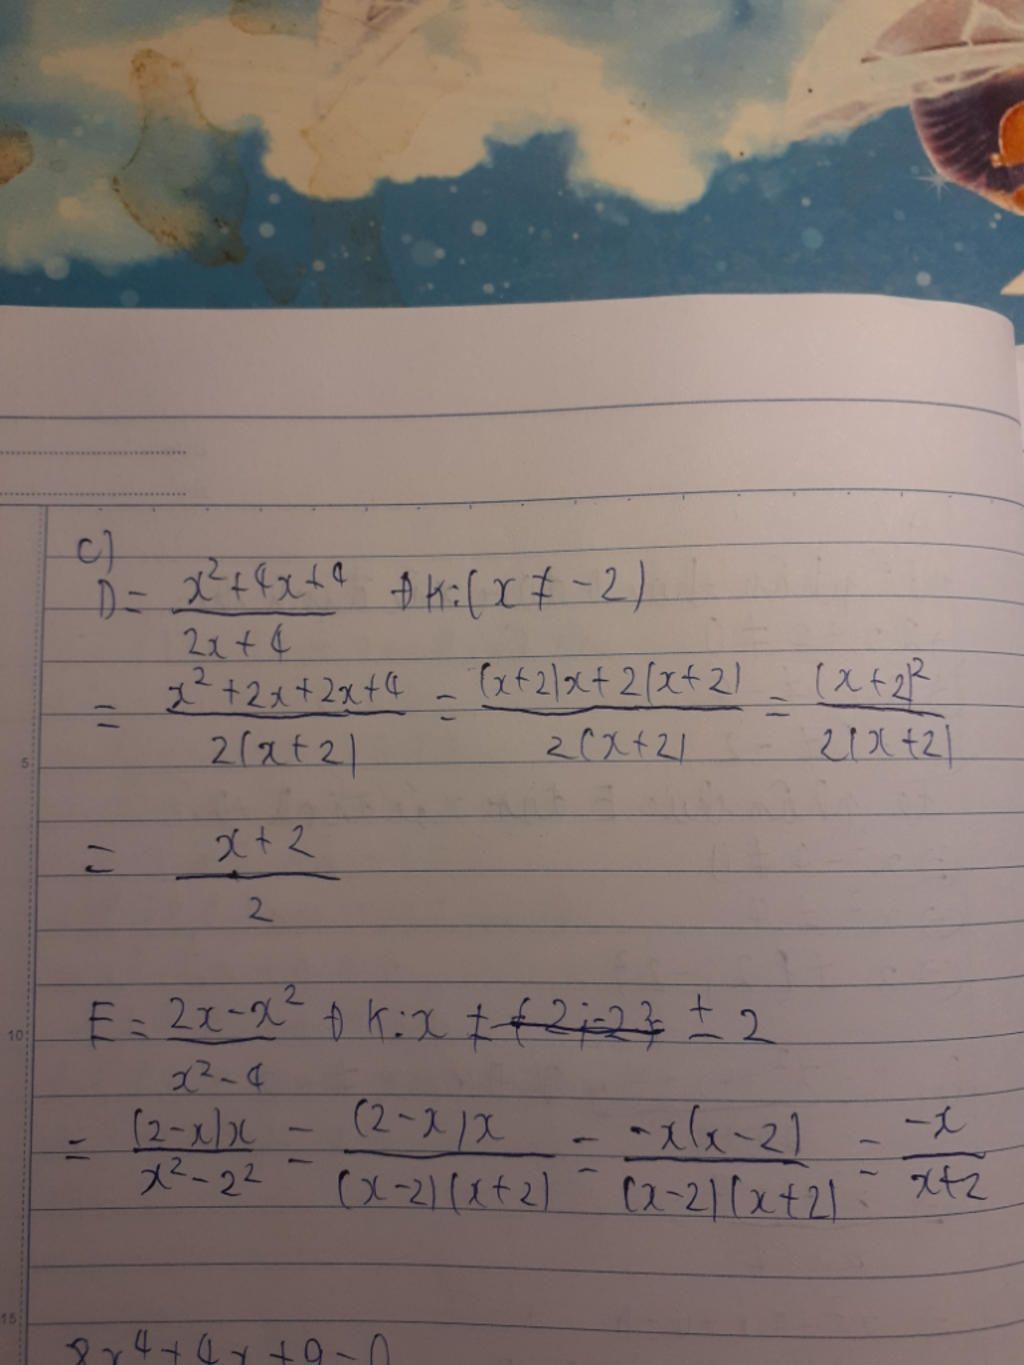 c)
D = \frac{x^2+4x+4}{2x+4} ĐK:(x ≠ -2)
= \frac{x^2+2x+2x+4}{2(x+2)} = \frac{(x+2)x+2(x+2)}{2(x+2)} = \frac{(x+2)^2}{2(x+2)}
5
= \frac{x+2}{2}
10
E = \frac{2x-x^2}{x^2-4} ĐK:x ≠ ± 2
= \frac{(2-x)x}{x^2-2^2} = \frac{(2-x)x}{(x-2)(x+2)} = \frac{-x(x-2)}{(x-2)(x+2)} = \frac{-x}{x+2}
15